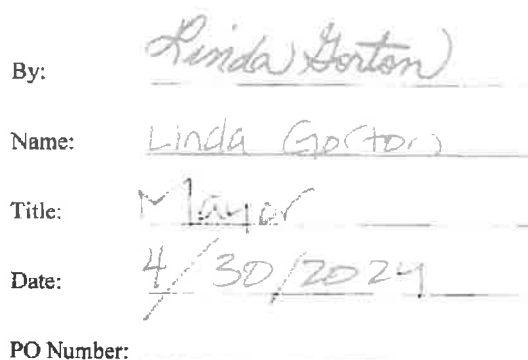 By: Linda Gorton
Name: Linda Gorton
Title: Mayor
Date: 4/30/2024
PO Number: